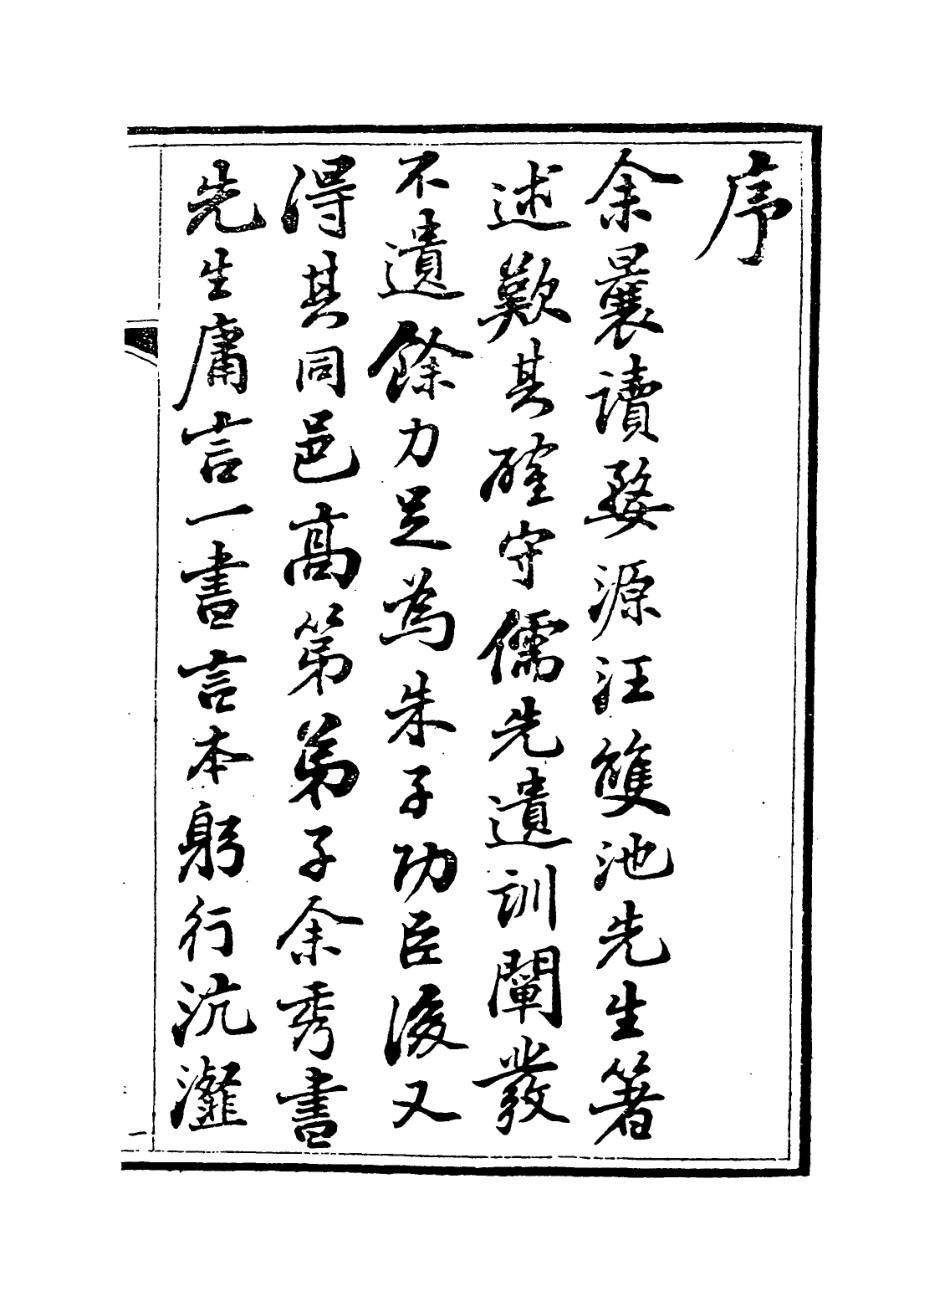 序
余曩讀婺源汪雙池先生箸
述歎其確守儒先遺訓闡發
不遺餘力足為朱子功臣後又
得其同邑高第弟子余秀書
先生庸言一書言本躬行沆瀣